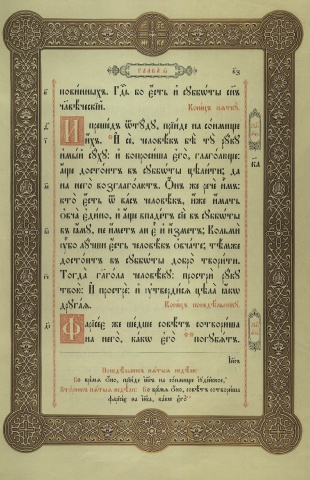 ГЛАВА
повинныхъ. Гдⷭ҇ь бо є҆́сть и҆ сꙋббѡ́ты сн҃ъ
чл҃вѣ́ческїй. Коне́цъ пѧткꙋ̀.
И҆ преше́дъ ѿтꙋ́дꙋ, прїи́де на со́нмище
и҆́хъ. И҆ сѐ, человѣ́къ бѣ̀ тꙋ̀ рꙋ́кꙋ
и҆мы́й сꙋ́хꙋ: и҆ вопроси́ша є҆го̀, глаго́люще:
а҆́ще досто́итъ въ сꙋббѡ̑ты цѣли́ти; да
на него̀ возглаго́лютъ. Ѻ҆́нъ же речѐ и҆̀мъ:
кто̀ є҆́сть ѿ ва́съ человѣ́къ, и҆́же и҆́мать
ѻ҆вча̀ є҆ди́но, и҆ а҆́ще впаде́тъ сїѐ въ сꙋббѡ̑ты
въ ꙗ҆́мꙋ, не и҆́метъ ли є҆̀ и҆ и҆́зметъ; Кольмѝ
ᲂу҆̀бо лꙋ́чши є҆́сть человѣ́къ ѻ҆вча́те; тѣ́мже
досто́итъ въ сꙋббѡ̑ты добро̀ твори́ти.
Тогда̀ гл҃гола человѣ́кꙋ: прострѝ рꙋ́кꙋ
твою̀: И҆ прострѐ: и҆ ᲂу҆тверди́сѧ цѣла̀ ꙗ҆́кѡ
дрꙋга́ѧ. Коне́цъ понедѣ́льникꙋ.
Фарїсе́є же ше́дше совѣ́тъ сотвори́ша
на него̀, ка́кѡ є҆го̀ погꙋбѧ́тъ.
І҆и҃съ
Понедѣ́льникъ пѧ́тыѧ недѣ́ли:
Во вре́мѧ ѻ҆́но, прїи́де і҆и҃съ на со́нмище і҆ꙋде́йское,
Вто́рникъ пѧ́тыѧ недѣ́ли: Во вре́мѧ ѻ҆́но, совѣ́тъ сотвори́ша
фарїсе́є на і҆и҃са, ка́кѡ є҆го̀